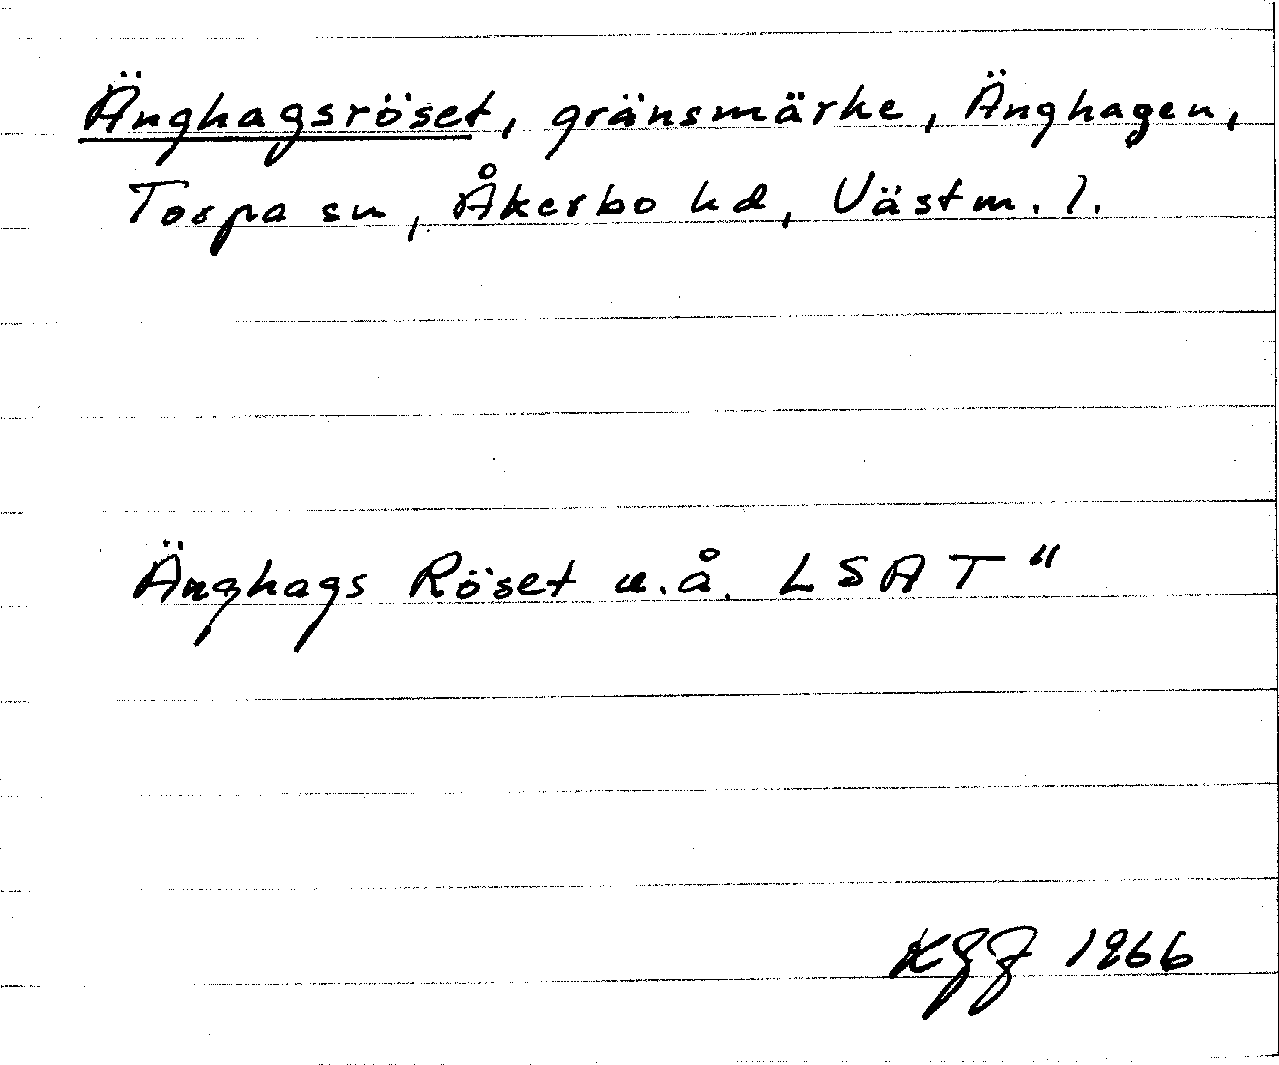 Änghagsröset, gränsmärke, Änghagen,
Torpa sn, Åkerbo hd, Västm. l.
Änghags Röset u.å. LSAT "
KGJ 1966